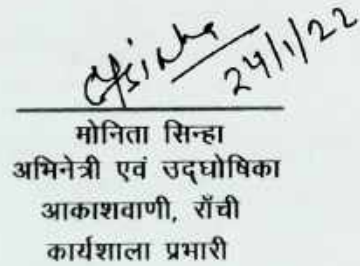 24/1/22
मोनिता सिन्हा
अभिनेत्री एवं उद्घोषिका
आकाशवाणी, राँची
कार्यशाला प्रभारी